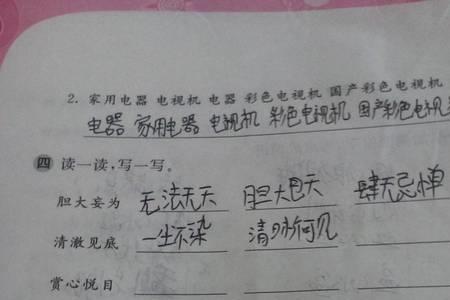 2. 家用电器 电视机 电器 彩色电视机 国产彩色电视机
电器 家用电器 电视机 彩色电视机 国产彩色电视
四 读一读，写一写。
胆大妄为 无法无天 胆大包天 肆无忌惮
清澈见底 一尘不染
赏心悦目